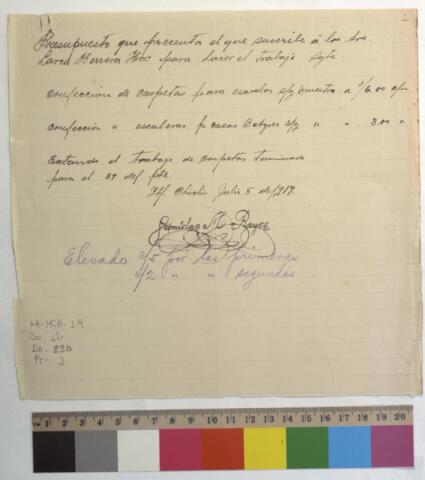 1
Presupuesto que presenta el que suscribe á los Sres.
Larco Herrera Hos para hacer el trabajo sgte.
confección de carpetas para escuelas s/g muestra a S/6.00 c/u
confección " escaleras p casas s/g " a 3.00 "
Estando el trabajo de carpetas terminado
para el 27 del pte.
Hf. Chiclín Julio 5 de 1917.
M. Reyes
Elevado s/5 por las primeras
s/2 " " segundas
AA-HCH-1.4
Ca. 12
Do. 220
Fr. 1
cm 1 2 3 4 5 6 7 8 9 10 11 12 13 14 15 16 17 18 19 20